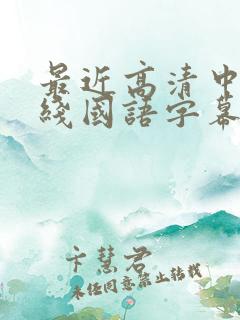 最近高清中
綫國語字幕
卞慧君
未经同意禁止转载